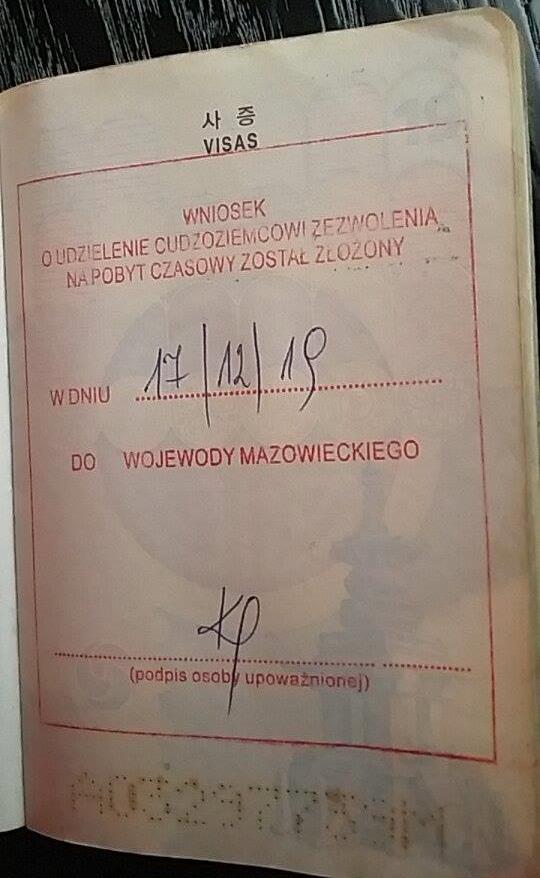 사 증
VISAS
WNIOSEK
O UDZIELENIE CUDZOZIEMCOWI ZEZWOLENIA
NA POBYT CZASOWY ZOSTAŁ ZŁOŻONY
W DNIU 17/12/19
DO WOJEWODY MAZOWIECKIEGO
(podpis osoby upoważnionej)